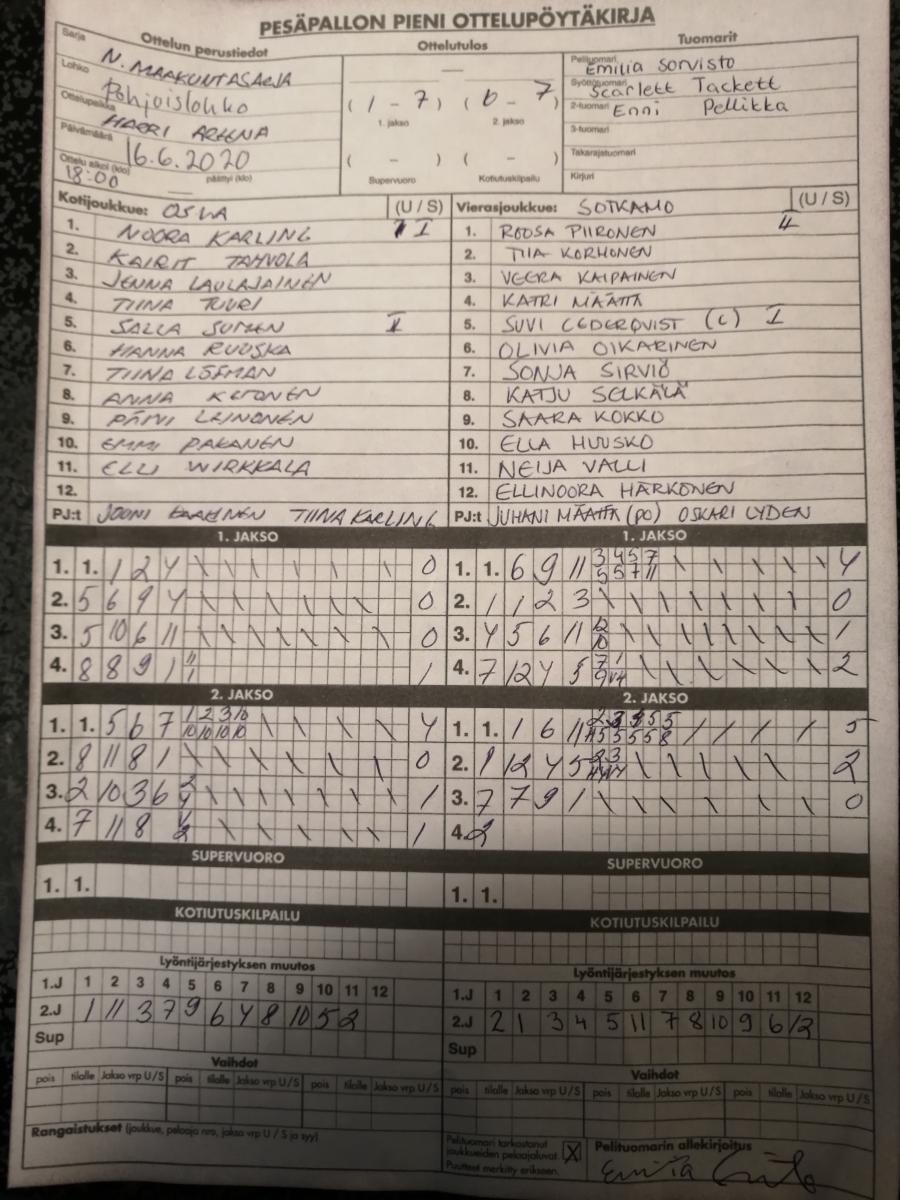 PESÄPALLON PIENI OTTELUPÖYTÄKIRJA
Ottelun perustiedot
Ottelutulos
Tuomarit
Sarja N. MAAKUNTASARJA
Lohko Pohjoislohko
Ottelupaikka HARRI AREENA
Päivämäärä 16.6.2020
Ottelu alkoi (klo) 18:00 päättyi (klo)
( 1 - 7 ) ( 6 - 7 )
1. jakso 2. jakso
( - ) ( - )
Supervuoro Kotiutuskilpailu
Pelituomari Emilia Sorvisto
Syöttötuomari Scarlett Tackett
2-tuomari Enni Pellikka
3-tuomari
Takarajatuomari
Kirjuri
Kotijoukkue: (U / S)
1. NOORA KARLING I
2. KAIRIT TAHVOLA
3. JENNA LAULAJAINEN
4. TIINA TUURI
5. SALLA I
6. HANNA RUUSKA
7. TIINA LÖFMAN
8. ANNA
9. PÄIVI LEINONEN
10. EMMI PAKANEN
11. ELLI WIRKKALA
12.
PJ:t JOONI TIINA KARLING
Vierasjoukkue: SOTKAMO (U / S)
1. ROOSA PIIRONEN 4
2. TIIA KORHONEN
3. VEERA KAIPAINEN
4. KATRI MÄÄTTÄ
5. SUVI CEDERQVIST (C) I
6. OLIVIA OIKARINEN
7. SONJA SIRVIÖ
8. KATJU SELKÄLÄ
9. SAARA KOKKO
10. ELLA HUUSKO
11. NEIJA VALLI
12. ELLINOORA HÄRKÖNEN
PJ:t JUHANI MÄÄTTÄ (PO) OSKARI LYDEN
1. JAKSO
1. 1. 1 2 4 0
2. 5 6 9 4 0
3. 5 10 6 11 0
4. 8 8 9 1 11 1 1
1. JAKSO
1. 1. 6 9 11 3 4 5 7 5 5 7 11 4
2. 1 1 2 3 0
3. 4 5 6 11 12 10 1
4. 7 12 4 5 2
2. JAKSO
1. 1. 5 6 7 1 2 3 10 10 10 10 10 4
2. 8 11 8 1 0
3. 2 10 3 6 2 4 1
4. 7 11 8 1
2. JAKSO
1. 1. 1 6 11 5
2. 1 12 4 5 2
3. 7 7 9 1 0
4. 2
SUPERVUORO
1. 1.
SUPERVUORO
1. 1.
KOTIUTUSKILPAILU
KOTIUTUSKILPAILU
Lyöntijärjestyksen muutos
1.J 1 2 3 4 5 6 7 8 9 10 11 12
2.J 1 11 3 7 9 6 4 8 10 5 2
Sup
Lyöntijärjestyksen muutos
1.J 1 2 3 4 5 6 7 8 9 10 11 12
2.J 2 1 3 4 5 11 7 8 10 9 6 12
Sup
Vaihdot
pois tilalle Jakso vrp U / S pois tilalle Jakso vrp U / S pois tilalle Jakso vrp U / S
Vaihdot
pois tilalle Jakso vrp U / S pois tilalle Jakso vrp U / S pois tilalle Jakso vrp U / S
Rangaistukset (joukkue, pelaaja nro, jakso vrp U / S ja syy)
Pelituomari tarkastanut
joukkueiden pelaajaluvat. X
Puutteet merkitty erikseen.
Pelituomarin allekirjoitus